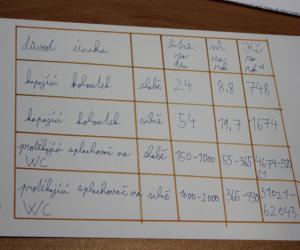 důvod úniku litrů za den m³ za rok Kč za rok
kapající kohoutek slabě 24 8,8 748
kapající kohoutek silně 54 19,7 1674
protékající splachovač na WC slabě 150-1000 55-365
protékající splachovač na WC silně 1000-2000 365-730 31021-62043